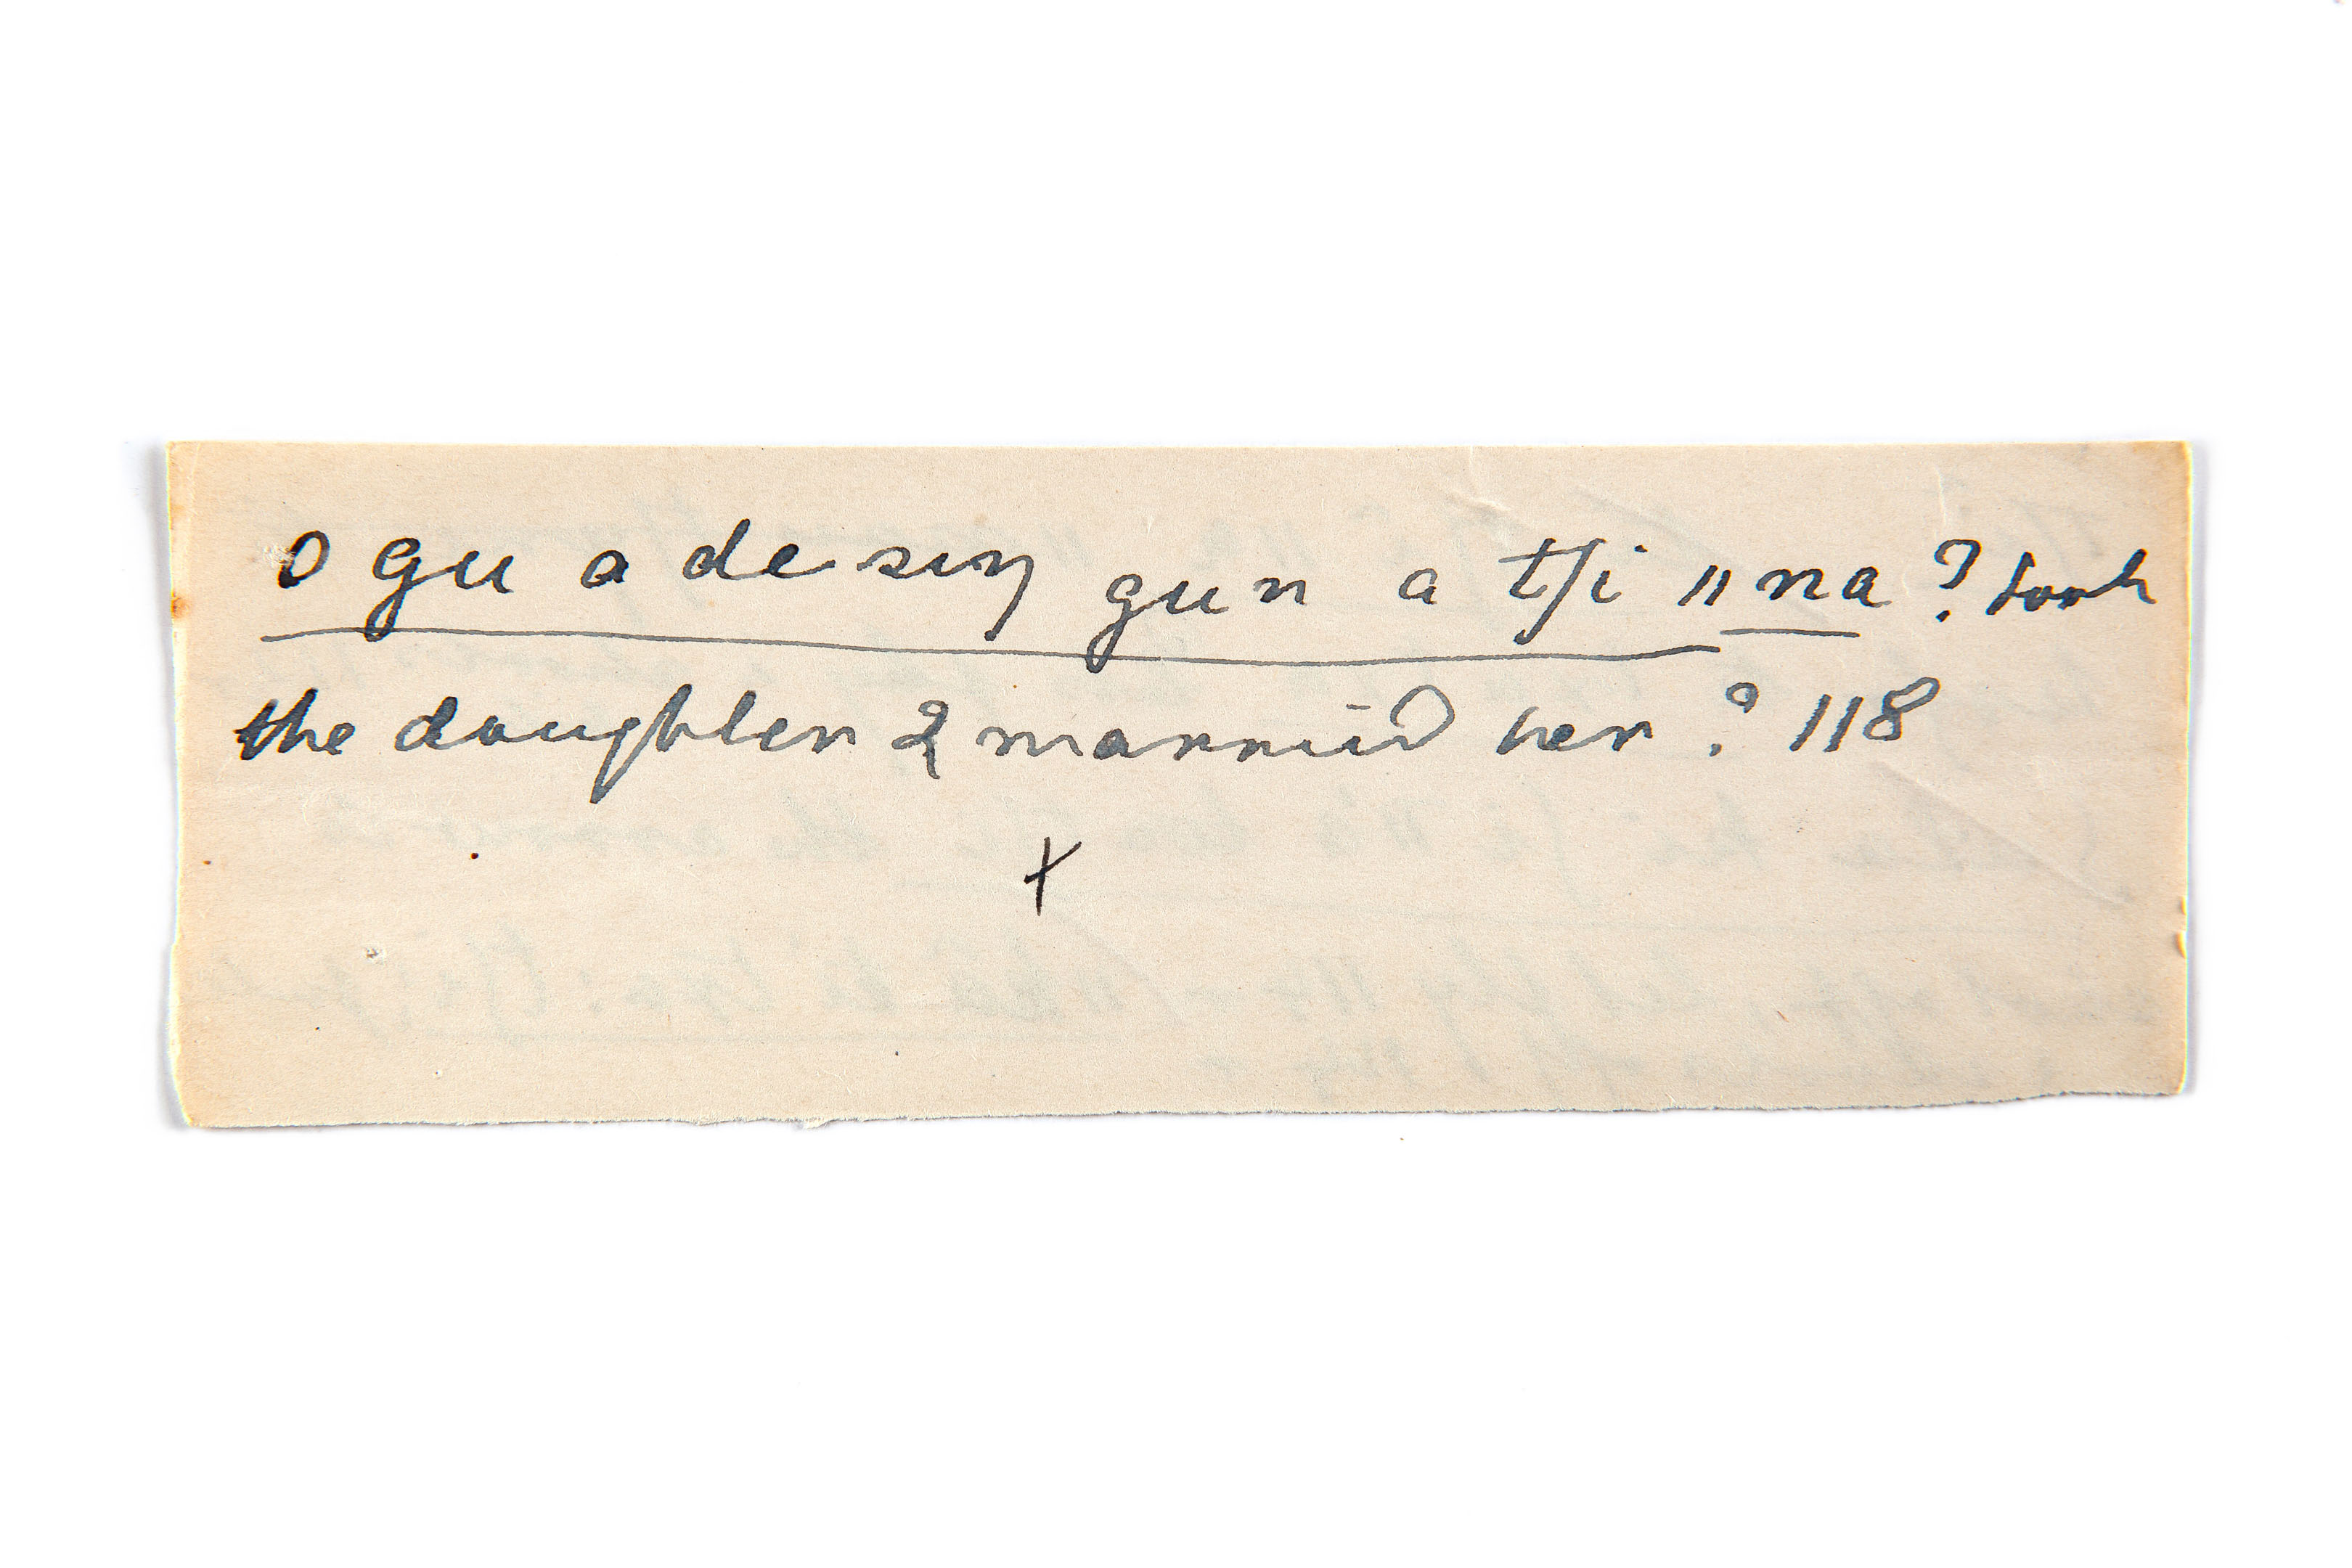 o gu a de siŋ gun a tʃi "na ? took
the daughter & married her ? 118
x